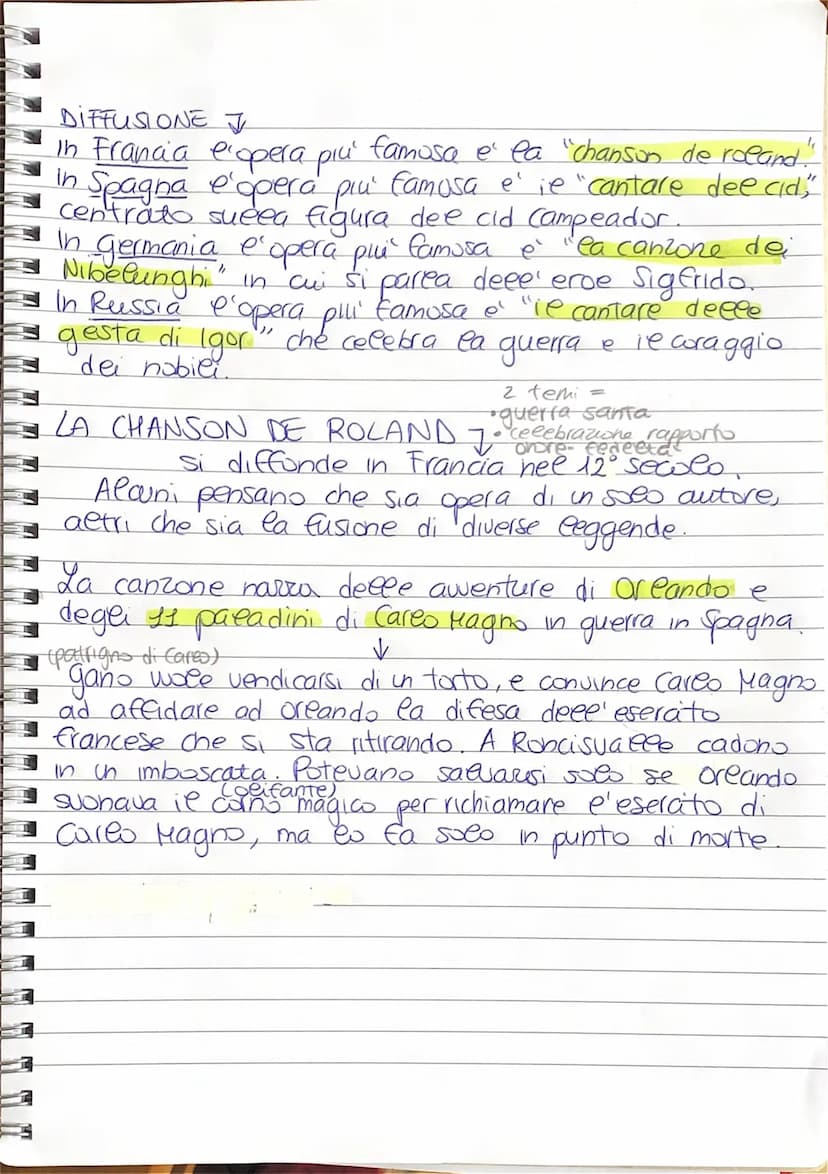 DIFFUSIONE ↓
In Francia l'opera piu' famosa e' la "chanson de roland."
In Spagna l'opera piu' famosa e' il "cantare del cid,"
centrato sulla figura del cid Campeador.
In germania l'opera piu' famosa e' "la canzone dei
Nibelunghi" in cui si parla dell'eroe Sigfrido.
In Russia l'opera piu' famosa e' "il cantare delle
gesta di Igor" che celebra la guerra e il coraggio
dei nobili.
2 temi =
•guerra santa
LA CHANSON DE ROLAND ↓ •celebrazione rapporto
onore-fedeltà
si diffonde in Francia nel 12° secolo.
Alcuni pensano che sia opera di un solo autore,
altri che sia la fusione di diverse leggende.
La canzone narra delle avventure di Orlando e
degli 11 paladini di Carlo Magno in guerra in Spagna.
(patrigno di Carlo) ↓
Gano vuole vendicarsi di un torto, e convince Carlo Magno
ad affidare ad Orlando la difesa dell'esercito
francese che si sta ritirando. A Roncisvalle cadono
in un imboscata. Potevano salvarsi solo se Orlando
(olifante)
suonava il corno magico per richiamare l'esercito di
Carlo Magno, ma lo fa solo in punto di morte.